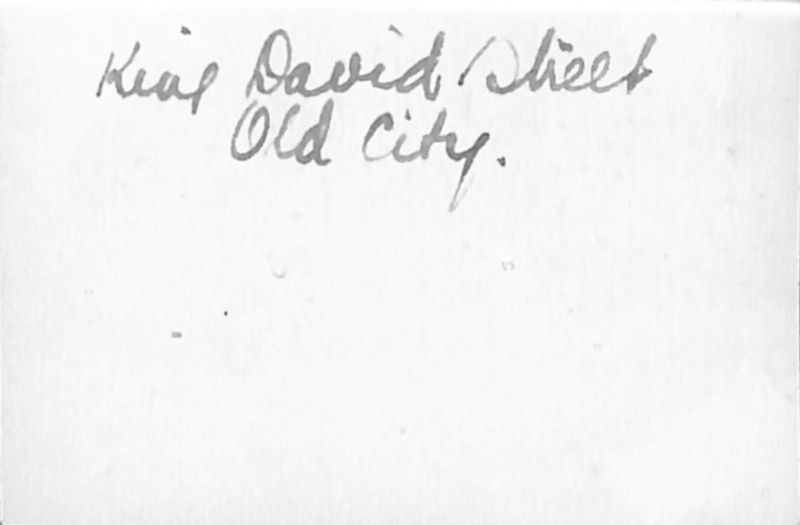 King David Street
Old City.